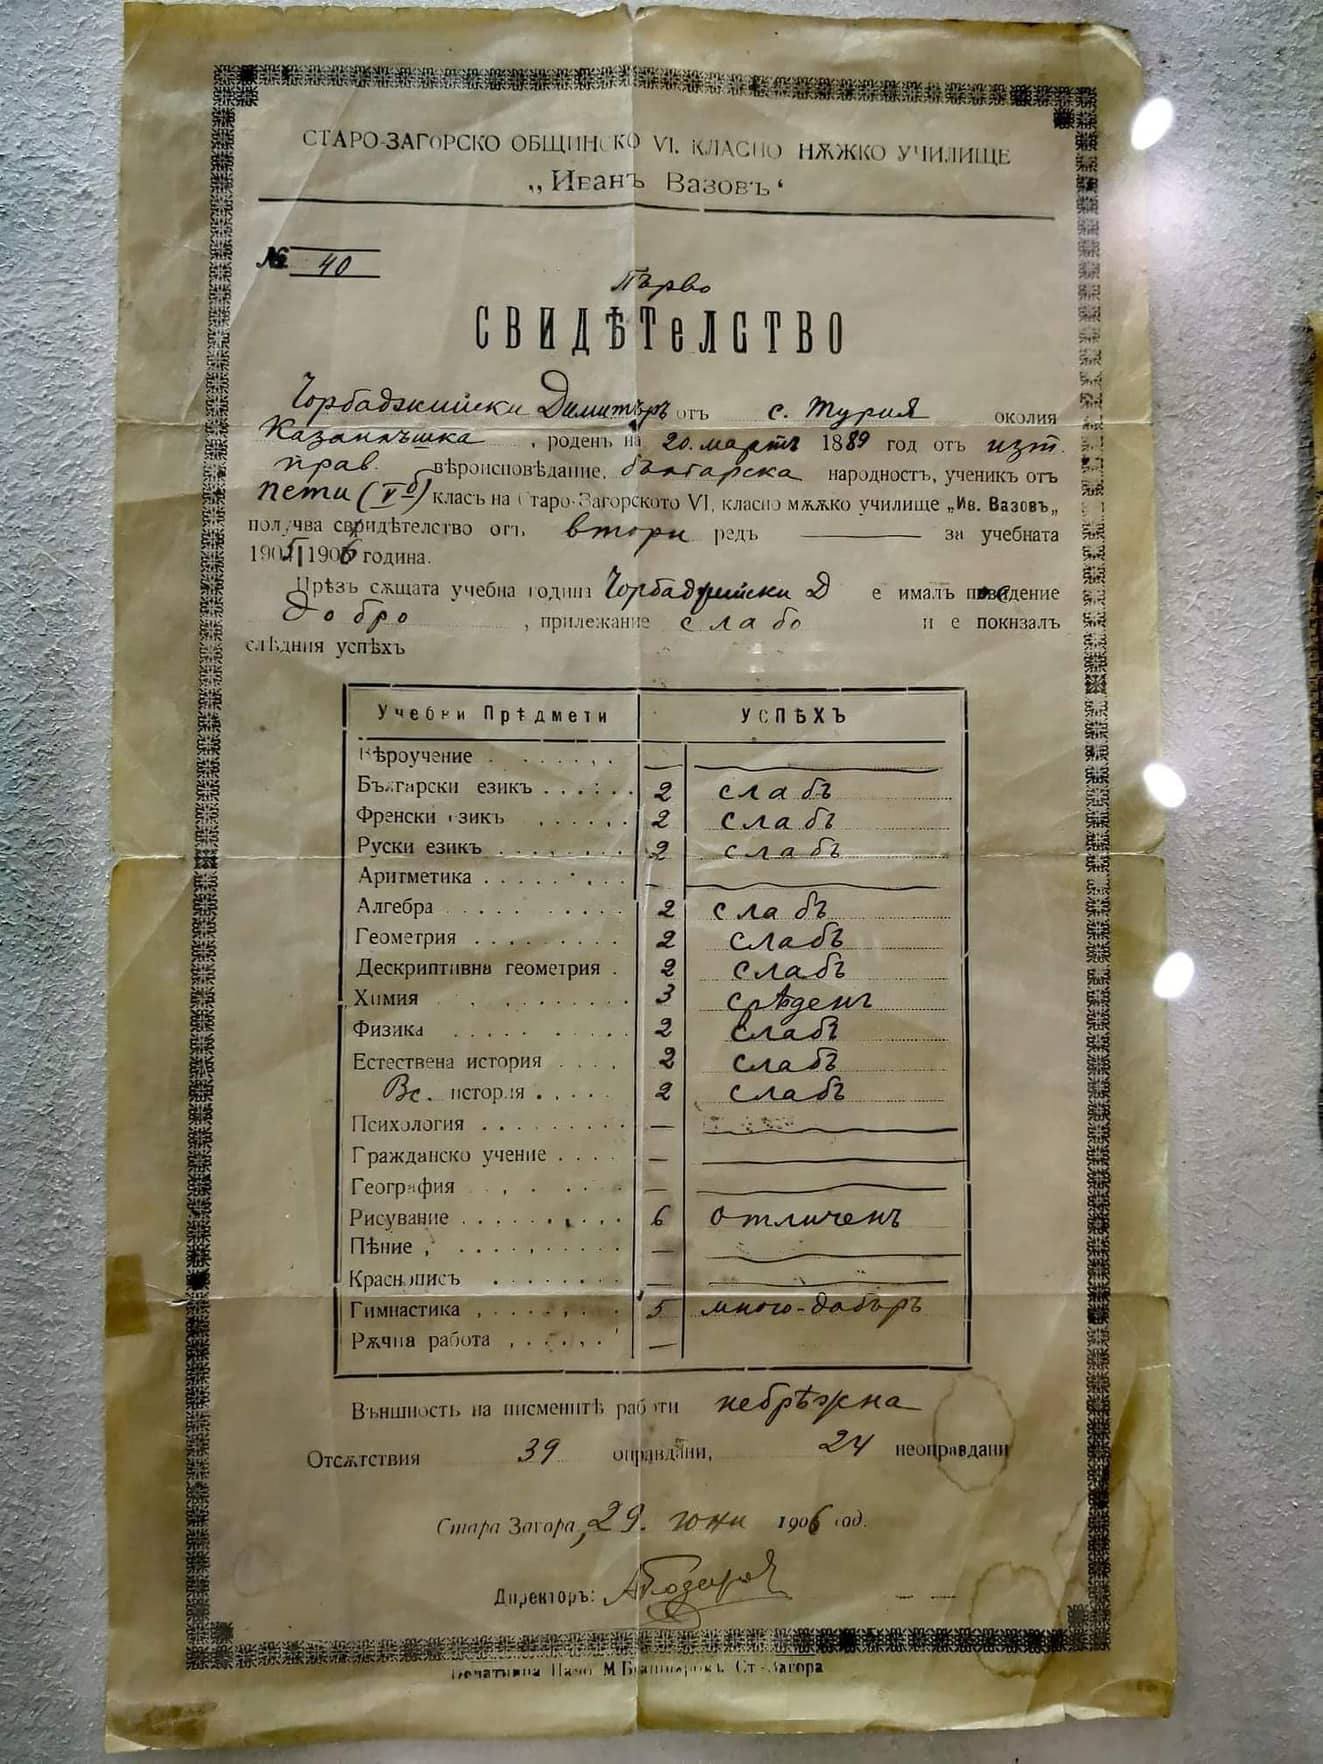 СТАРО-ЗАГОРСКО ОБЩИНСКО VI. КЛАСНО МѪЖКО УЧИЛИЩЕ
„Иванъ Вазовъ“
№ 40
Първо
СВИДѢТеЛСТВО
Чорбаджийски Димитъръ отъ с. Турия околия
Казанлъшка, роденъ на 20. мартъ 1889 год отъ изт.
прав. вѣроисповѣдание, българска народность, ученикъ отъ
пети (Vб) класъ на Старо-Загорското VI, класно мѫжко училище „Ив. Вазовъ„
получва свидѣтелство отъ втори редъ ——— за учебната
1905 | 1906 година.
Прѣзъ сѫщата учебна година Чорбаджийски Д е ималъ поведение
добро, прилежание слабо и е покнзалъ
слѣдния успѣхъ
Учебни Прѣдмети УСПѢХЪ
Вѣроучение . . . . . . —
Български езикъ . . . . . . 2 слабъ
Френски езикъ . . . . . . 2 слабъ
Руски езикъ . . . . . . . 2 слабъ
Аритметика . . . . . . . —
Алгебра . . . . . . . . . 2 слабъ
Геометрия . . . . . . . . . 2 слабъ
Дескриптивна геометрия . 2 слабъ
Химия . . . . . . . . 3 срѣденъ
Физика . . . . . . . . . 2 слабъ
Естествена история . . . . 2 слабъ
Вс. история . . . . . 2 слабъ
Психология . . . . . . . . . —
Гражданско учение . . . . —
География . . . . . —
Рисуване . . . . . . . . . 6 отличенъ
Пѣние , . . . . . . . . —
Краснописъ . . . . . . . . —
Гимнастика . . . . . . . 5 много-добъръ
Рѫчна работа . . . . . . —
Външность на писменитѣ работи небрѣжна
Отсѫтствия 39 оправдани, 24 неоправдани
Стара Загора, 29. юни 1906 год.
Директоръ:
Ст-Загора